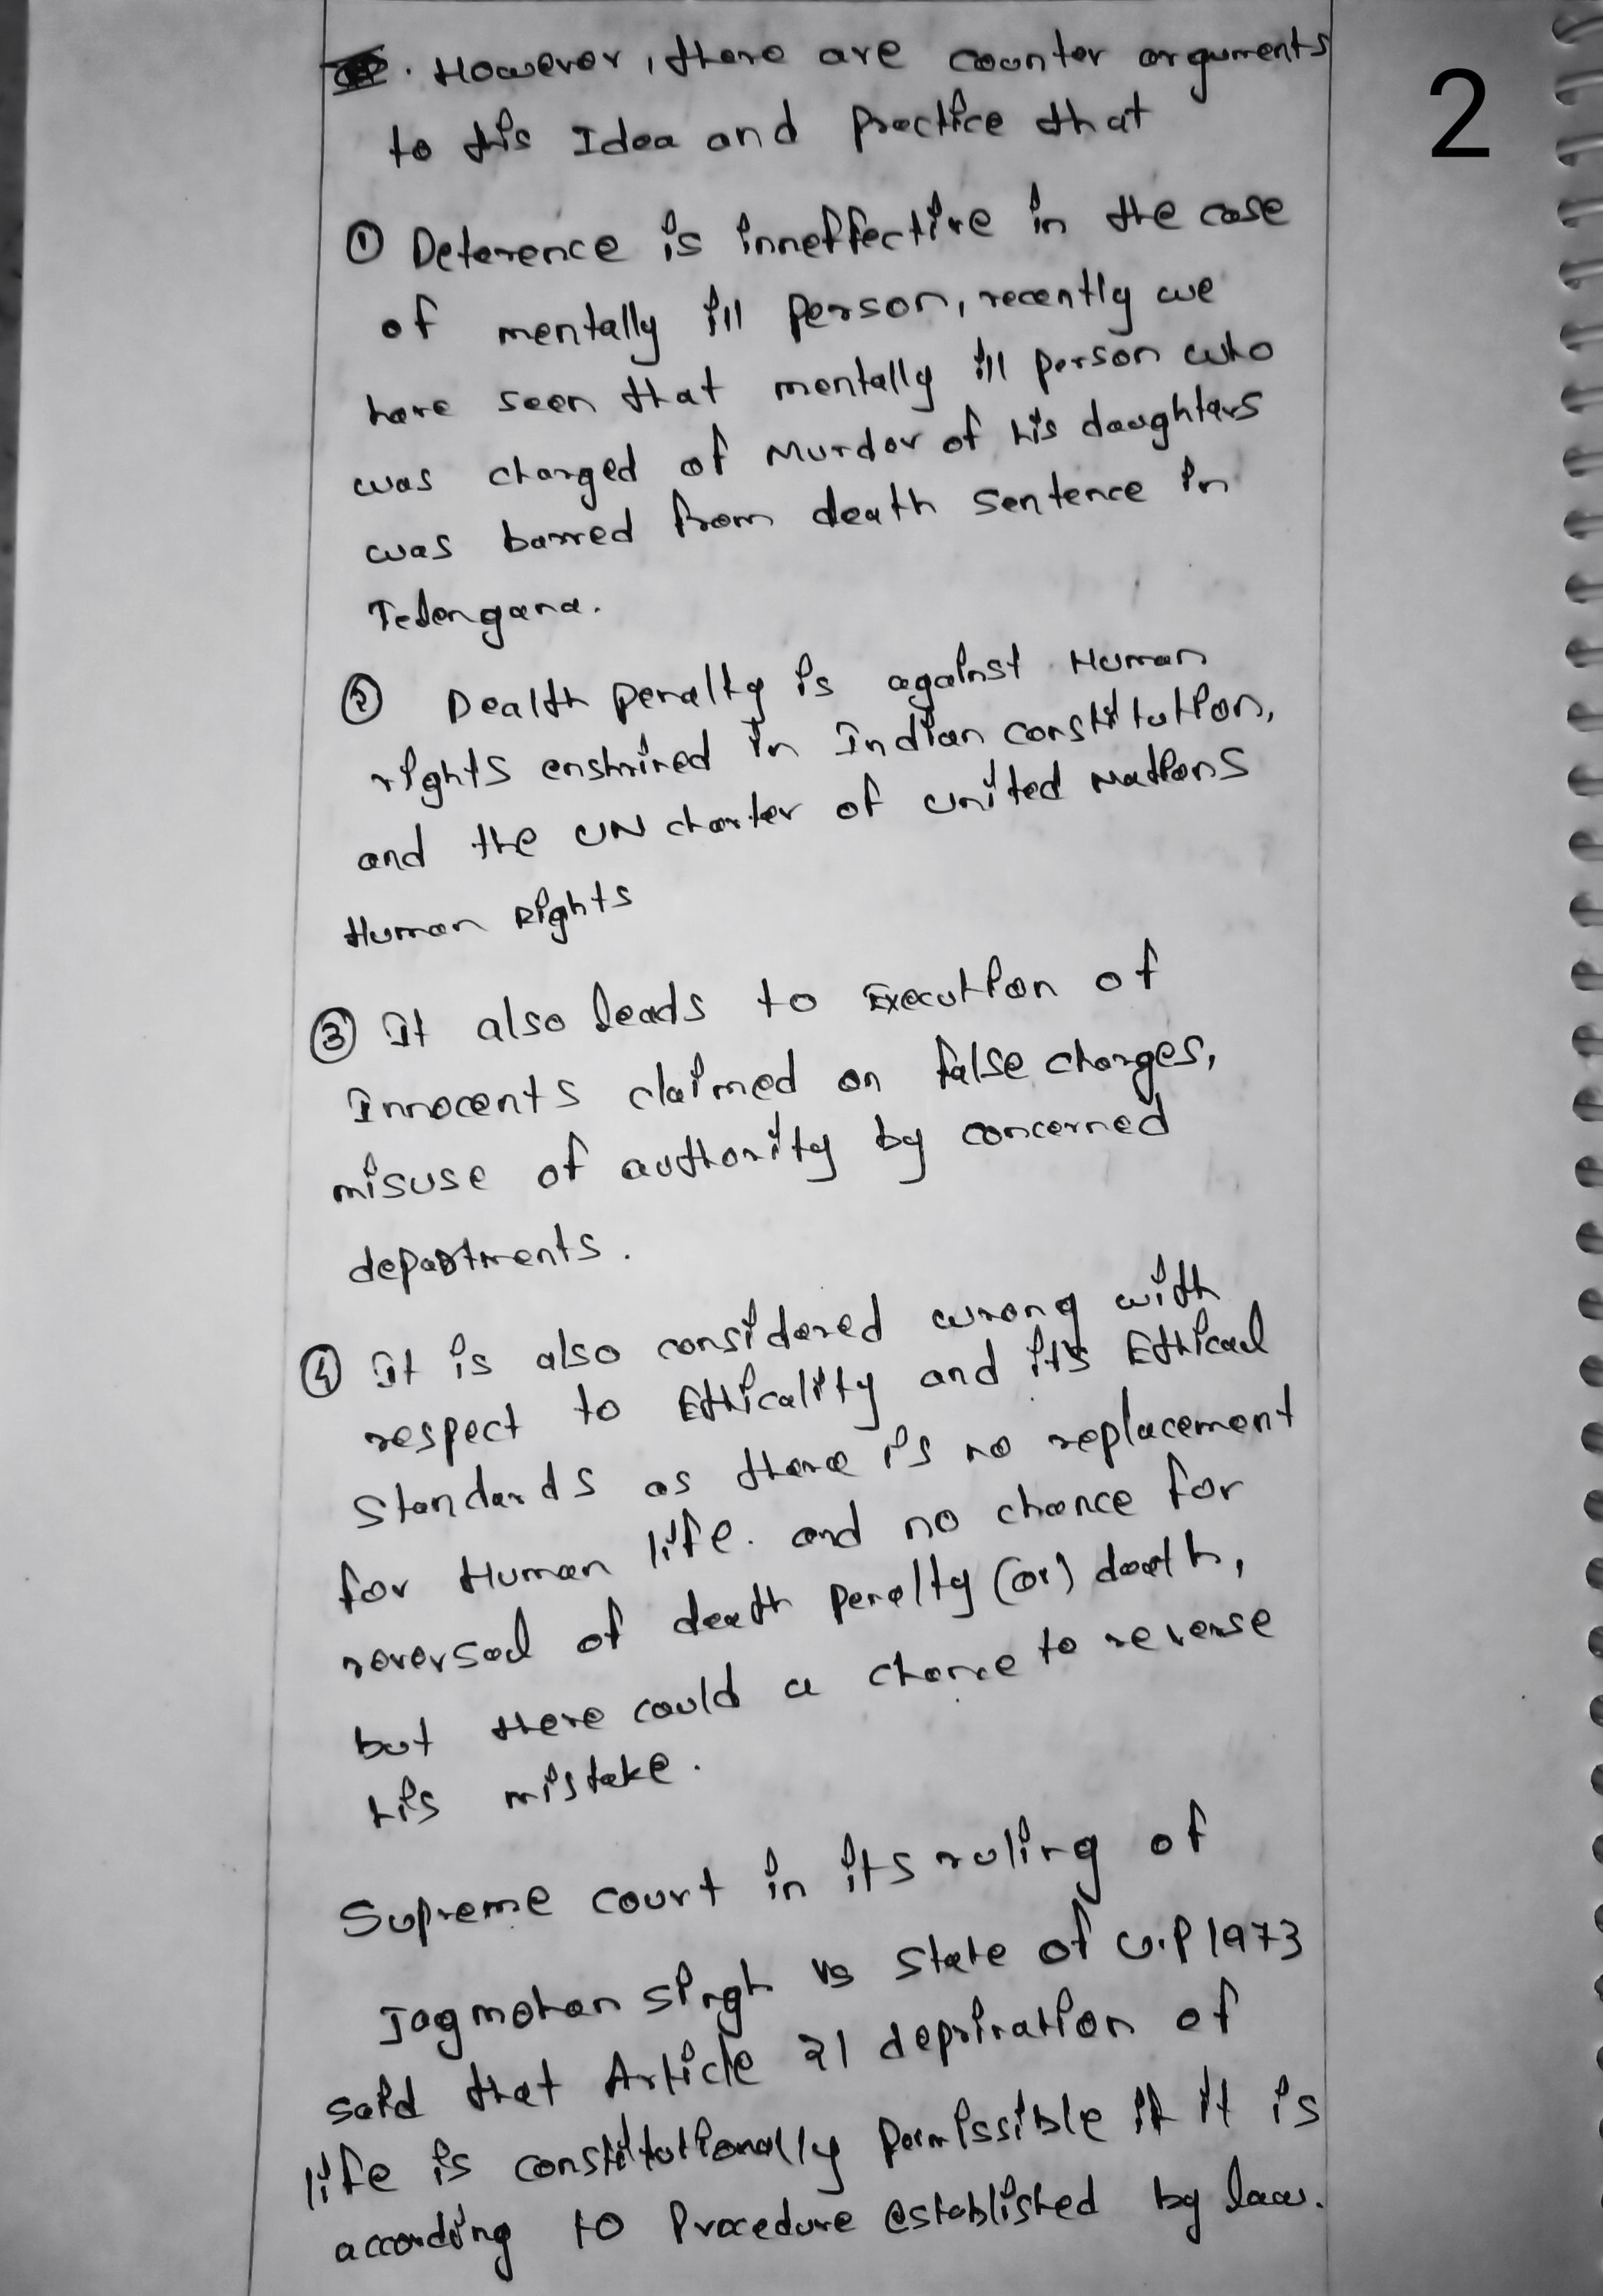 . However, there are counter arguments
2
to this Idea and practice that
① Deterence is inneffective in the case
of mentally ill person, recently we
have seen that mentally ill person who
was charged of Murder of his daughters
was barred from death sentence in
Telengana.
② Dealth penalty is against Human
rights enshrined in Indian constitution,
and the UN charter of united Nations
Human Rights
③ It also leads to Execution of
Innocents claimed on false charges,
misuse of authority by concerned
departments.
④ It is also considered wrong with
respect to Ethicality and it's Ethical
Standards as there is no replacement
for Human life. and no chance for
reversal of death penalty (or) death,
but there could a chance to reverse
his mistake.
Supreme court in its ruling of
Jagmohan singh vs State of U.P 1973
said that Article 21 deprivation of
life is constitutionally permissible if it is
according to Procedure established by law.